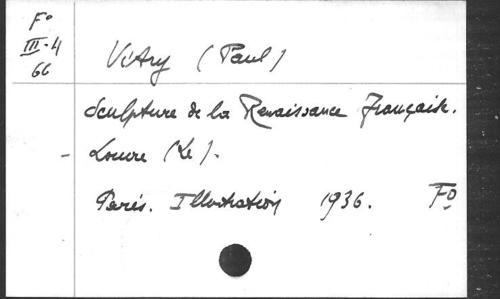 Fo
III-4
66
Vitry (Paul)
Sculpture de la Renaissance Française.
- Louvre (Le).
Paris. Illustration 1936. Fo